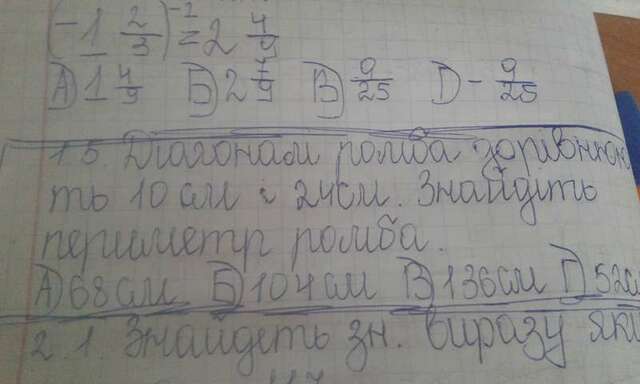 (-1 2/3)⁻² = 2 4/9
А) 1 4/9 Б) 2 7/9 В) 9/25 Г) - 9/25
1.5. Діагоналі ромба дорівнюю
ть 10 см і 24 см. Знайдіть
периметр ромба.
А) 68 см Б) 104 см В) 136 см Г) 52 см
2.1. Знайдіть зн. виразу як